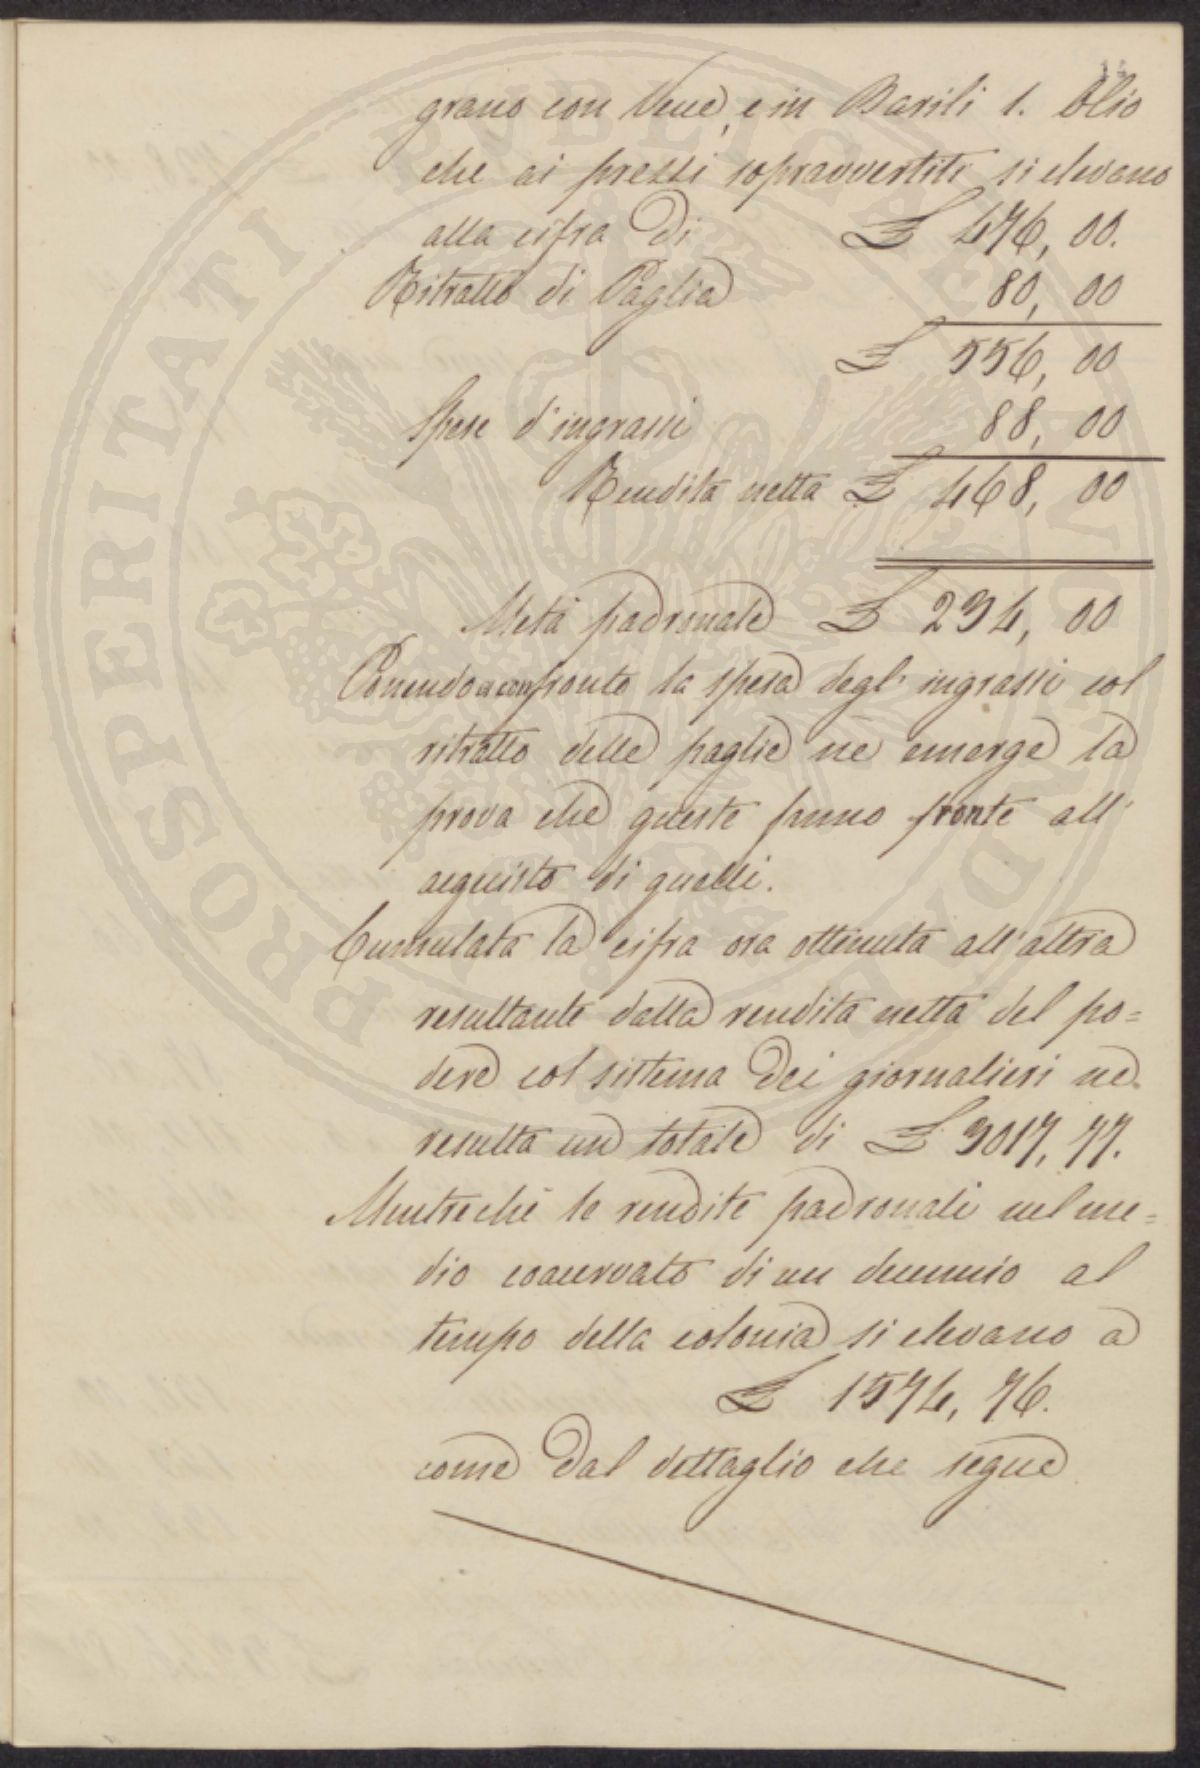 grano con Vene, e in Barili 1. Olio
che ai prezzi sopravvertiti si elevano
alla cifra di £ 476, 00.
Ritratto di Paglia 80, 00
£ 556, 00
Spese d'ingrassi 88, 00
Rendita netta £ 468, 00
Metà padronale £ 234, 00
Ponendo a confronto la spesa degl' ingrassi col
ritratto delle paglie ne emerge la
prova che queste fanno fronte all'
acquisto di quelli.
Cumulata la cifra ora ottenuta all'altra
resultante dalla rendita netta del po=
dere col sistema dei giornalieri ne
resulta un totale di £ 3017, 77.
Mentreché le rendite padronali nel me=
dio coacervato di un decennio al
tempo della colonia si elevano a
£ 1574, 76.
come dal dettaglio che segue
PROSPERITATI PVBLICAE AVGENDAE